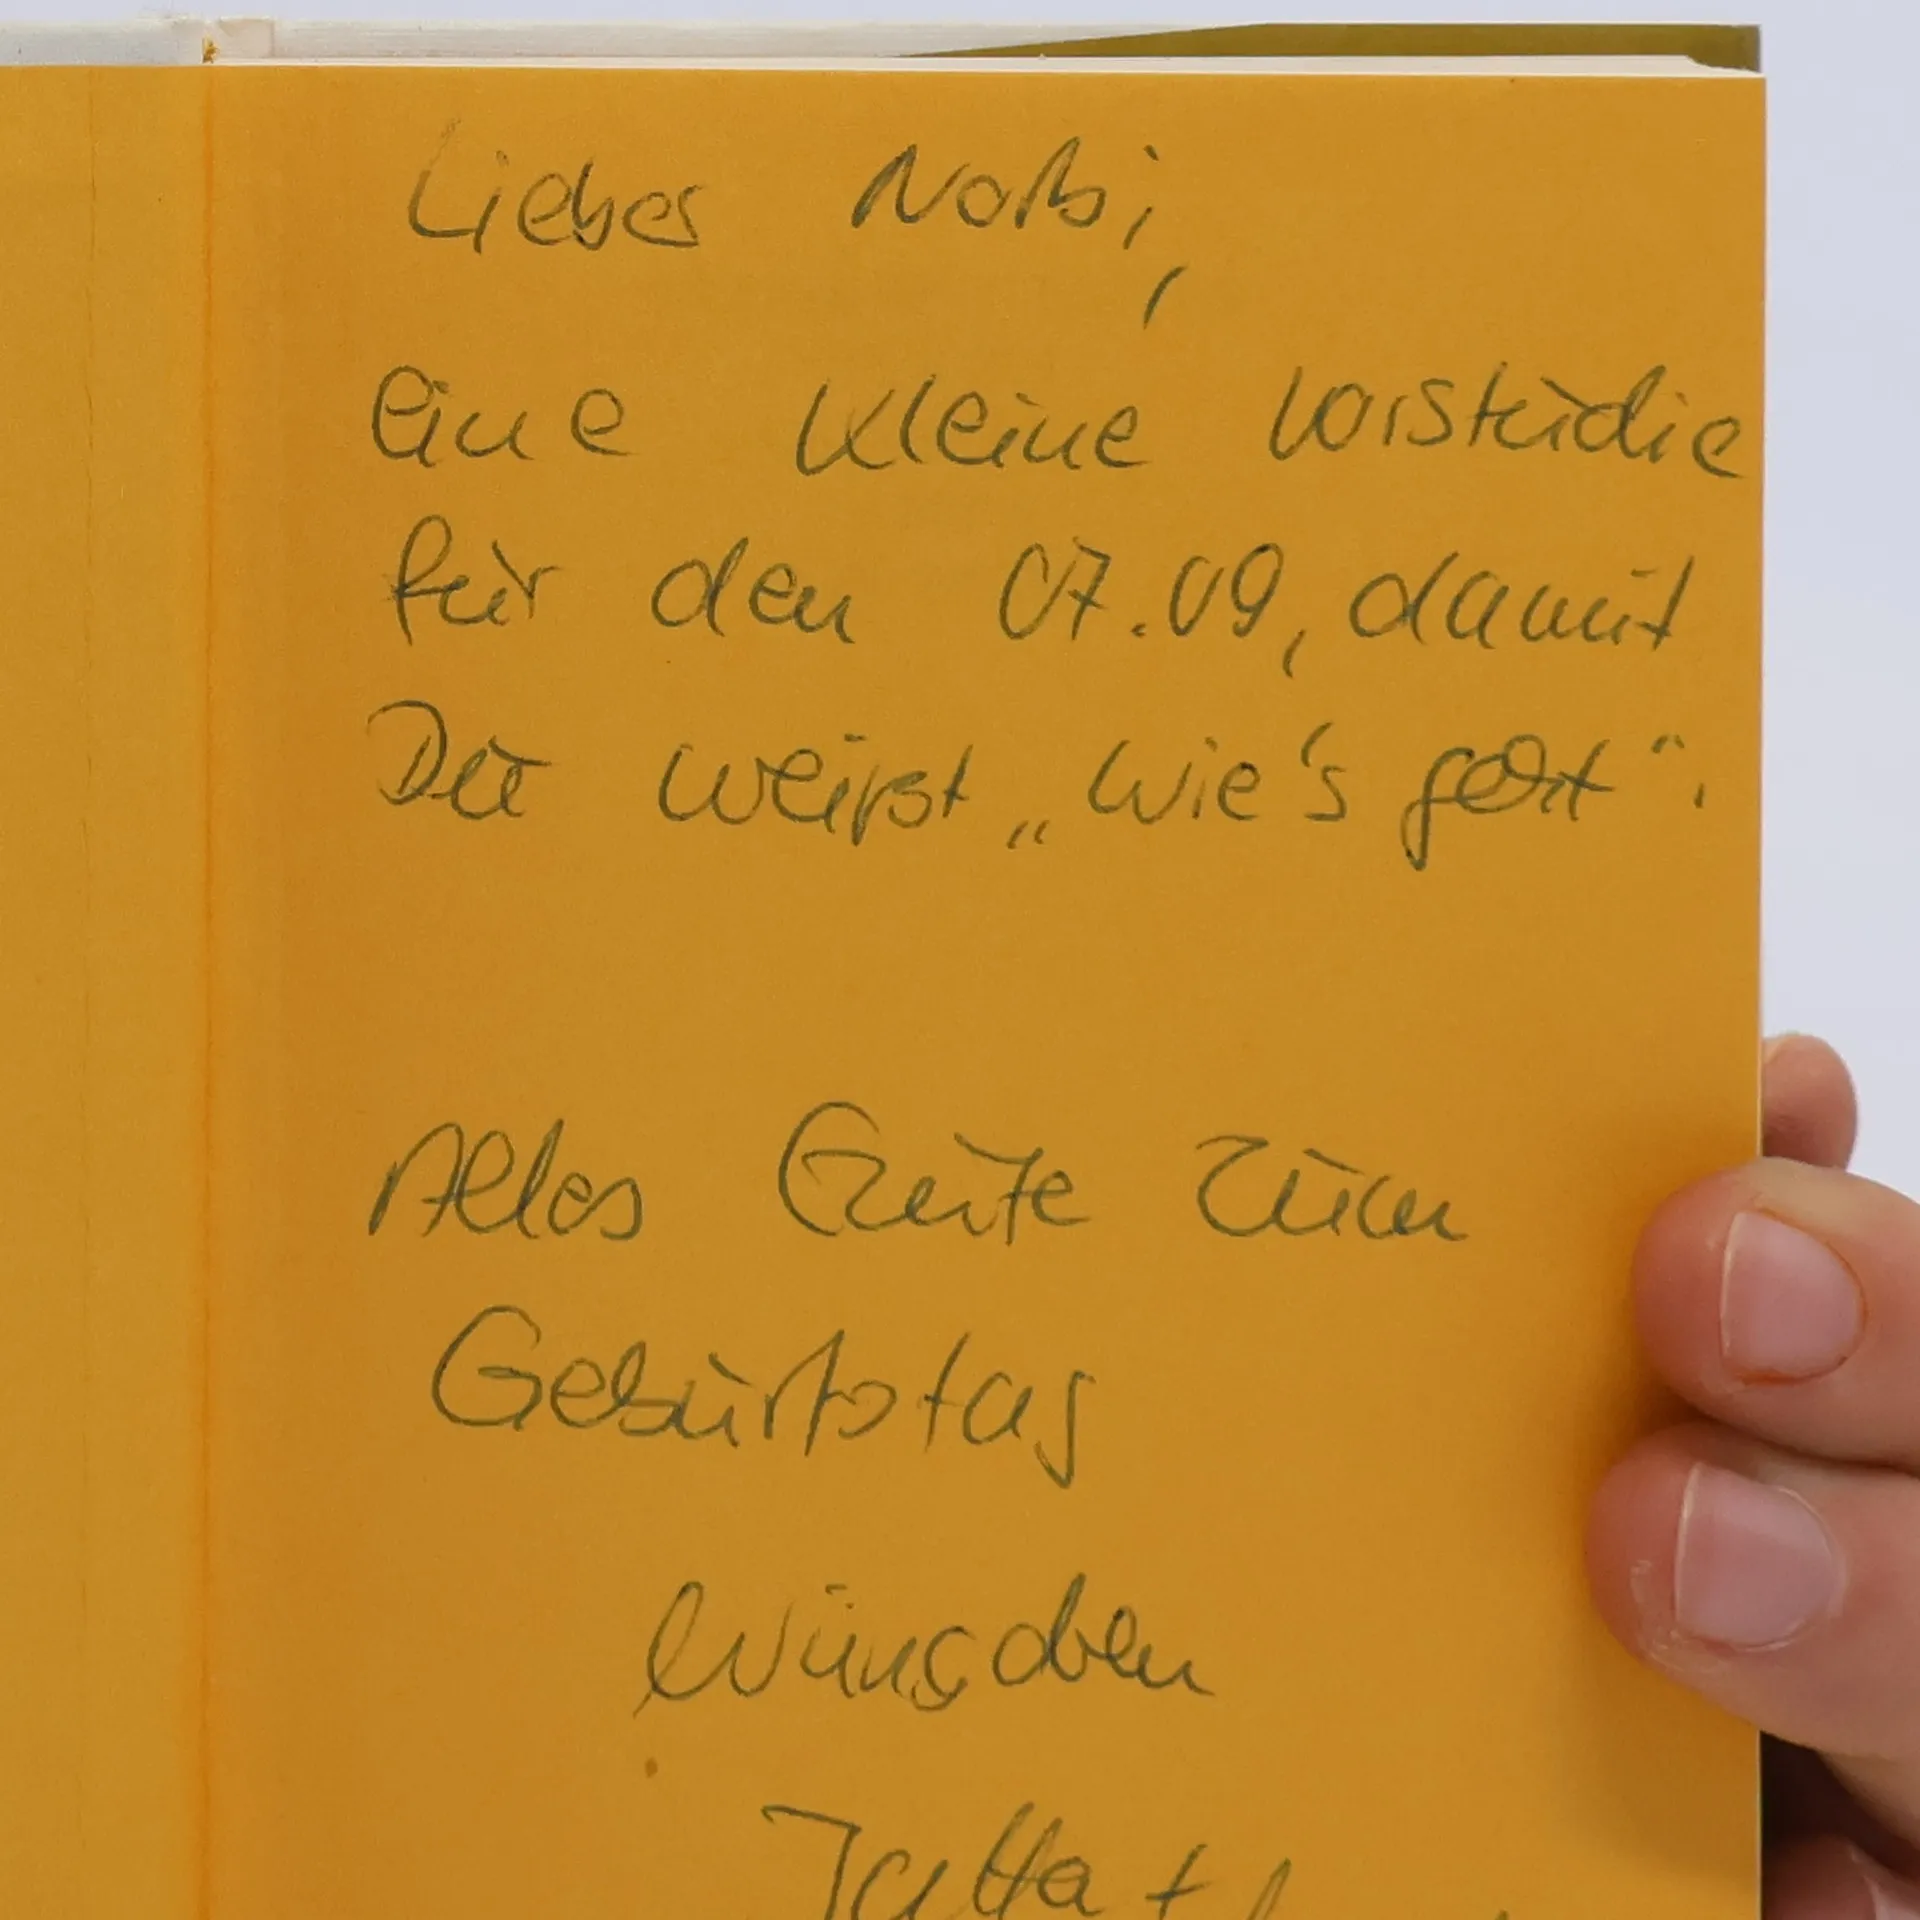 Lieber Norbi,
eine kleine Vorstudie
für den 07.09, damit
Du weißt „wie's geht“.
Alles Gute zum
Geburtstag
wünschen
Jutta +